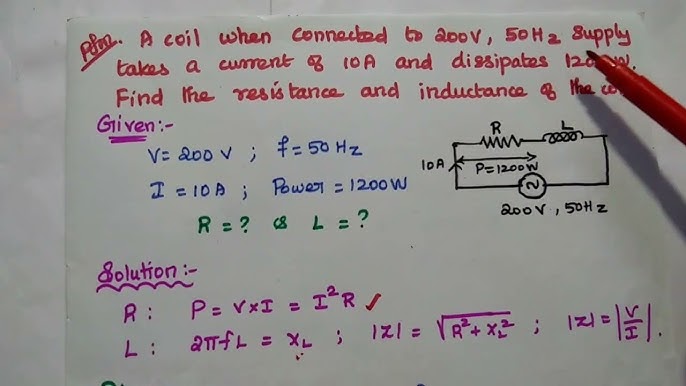 Pbm. A coil when connected to 200V, 50Hz supply
takes a current of 10A and dissipates W.
Find the resistance and inductance of the
Given:-
V = 200 V ; f = 50 Hz
I = 10A ; Power = 1200W
R = ? & L = ?
R L
10A
P = 1200W
200V, 50Hz
Solution:-
R : P = V×I = I²R ✓
L : 2πfL = X_L ; |Z| = √(R² + X_L²) ; |Z| = |V/I|.